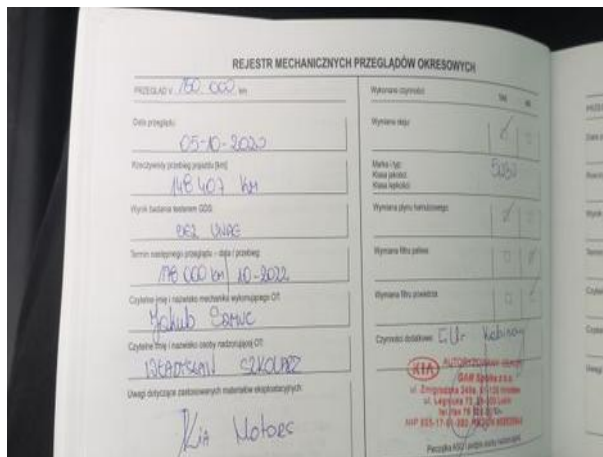 REJESTR MECHANICZNYCH PRZEGLĄDÓW OKRESOWYCH
PRZEGLĄD V 150.000 km
Data przeglądu:
05-10-2020
Rzeczywisty przebieg pojazdu [km]:
148 407 KM
Wynik badania testerem GDS:
BEZ UWAG
Termin następnego przeglądu – data / przebieg:
10-2022
Czytelne imię i nazwisko mechanika wykonującego OT:
Jakub
Czytelne imię i nazwisko osoby nadzorującej OT:
WŁADYSŁAW SZKOLARZ
Uwagi dotyczące zastosowanych materiałów eksploatacyjnych:
Kia Motors
Wykonane czynności:
TAK
Wymiana oleju:
Marka i typ:
Klasa jakości:
Klasa lepkości:
5W30
Wymiana płynu hamulcowego:
Wymiana filtru paliwa:
Wymiana filtru powietrza:
Czynności dodatkowe: Filtr Kabinowy
KIA AUTORYZOWANY
GAM Spółka z o.o.
ul. Legnicka
Pieczątka ASO i podpis osoby nadzorującej: